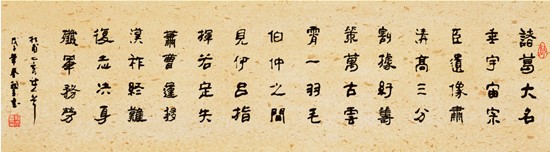 諸葛大名
垂宇宙宗
臣遺像肅
清高三分
割據紆籌
策萬古雲
霄一羽毛
伯仲之間
見伊呂指
揮若定失
蕭曹運移
漢祚終難
復志決身
殲軍務勞